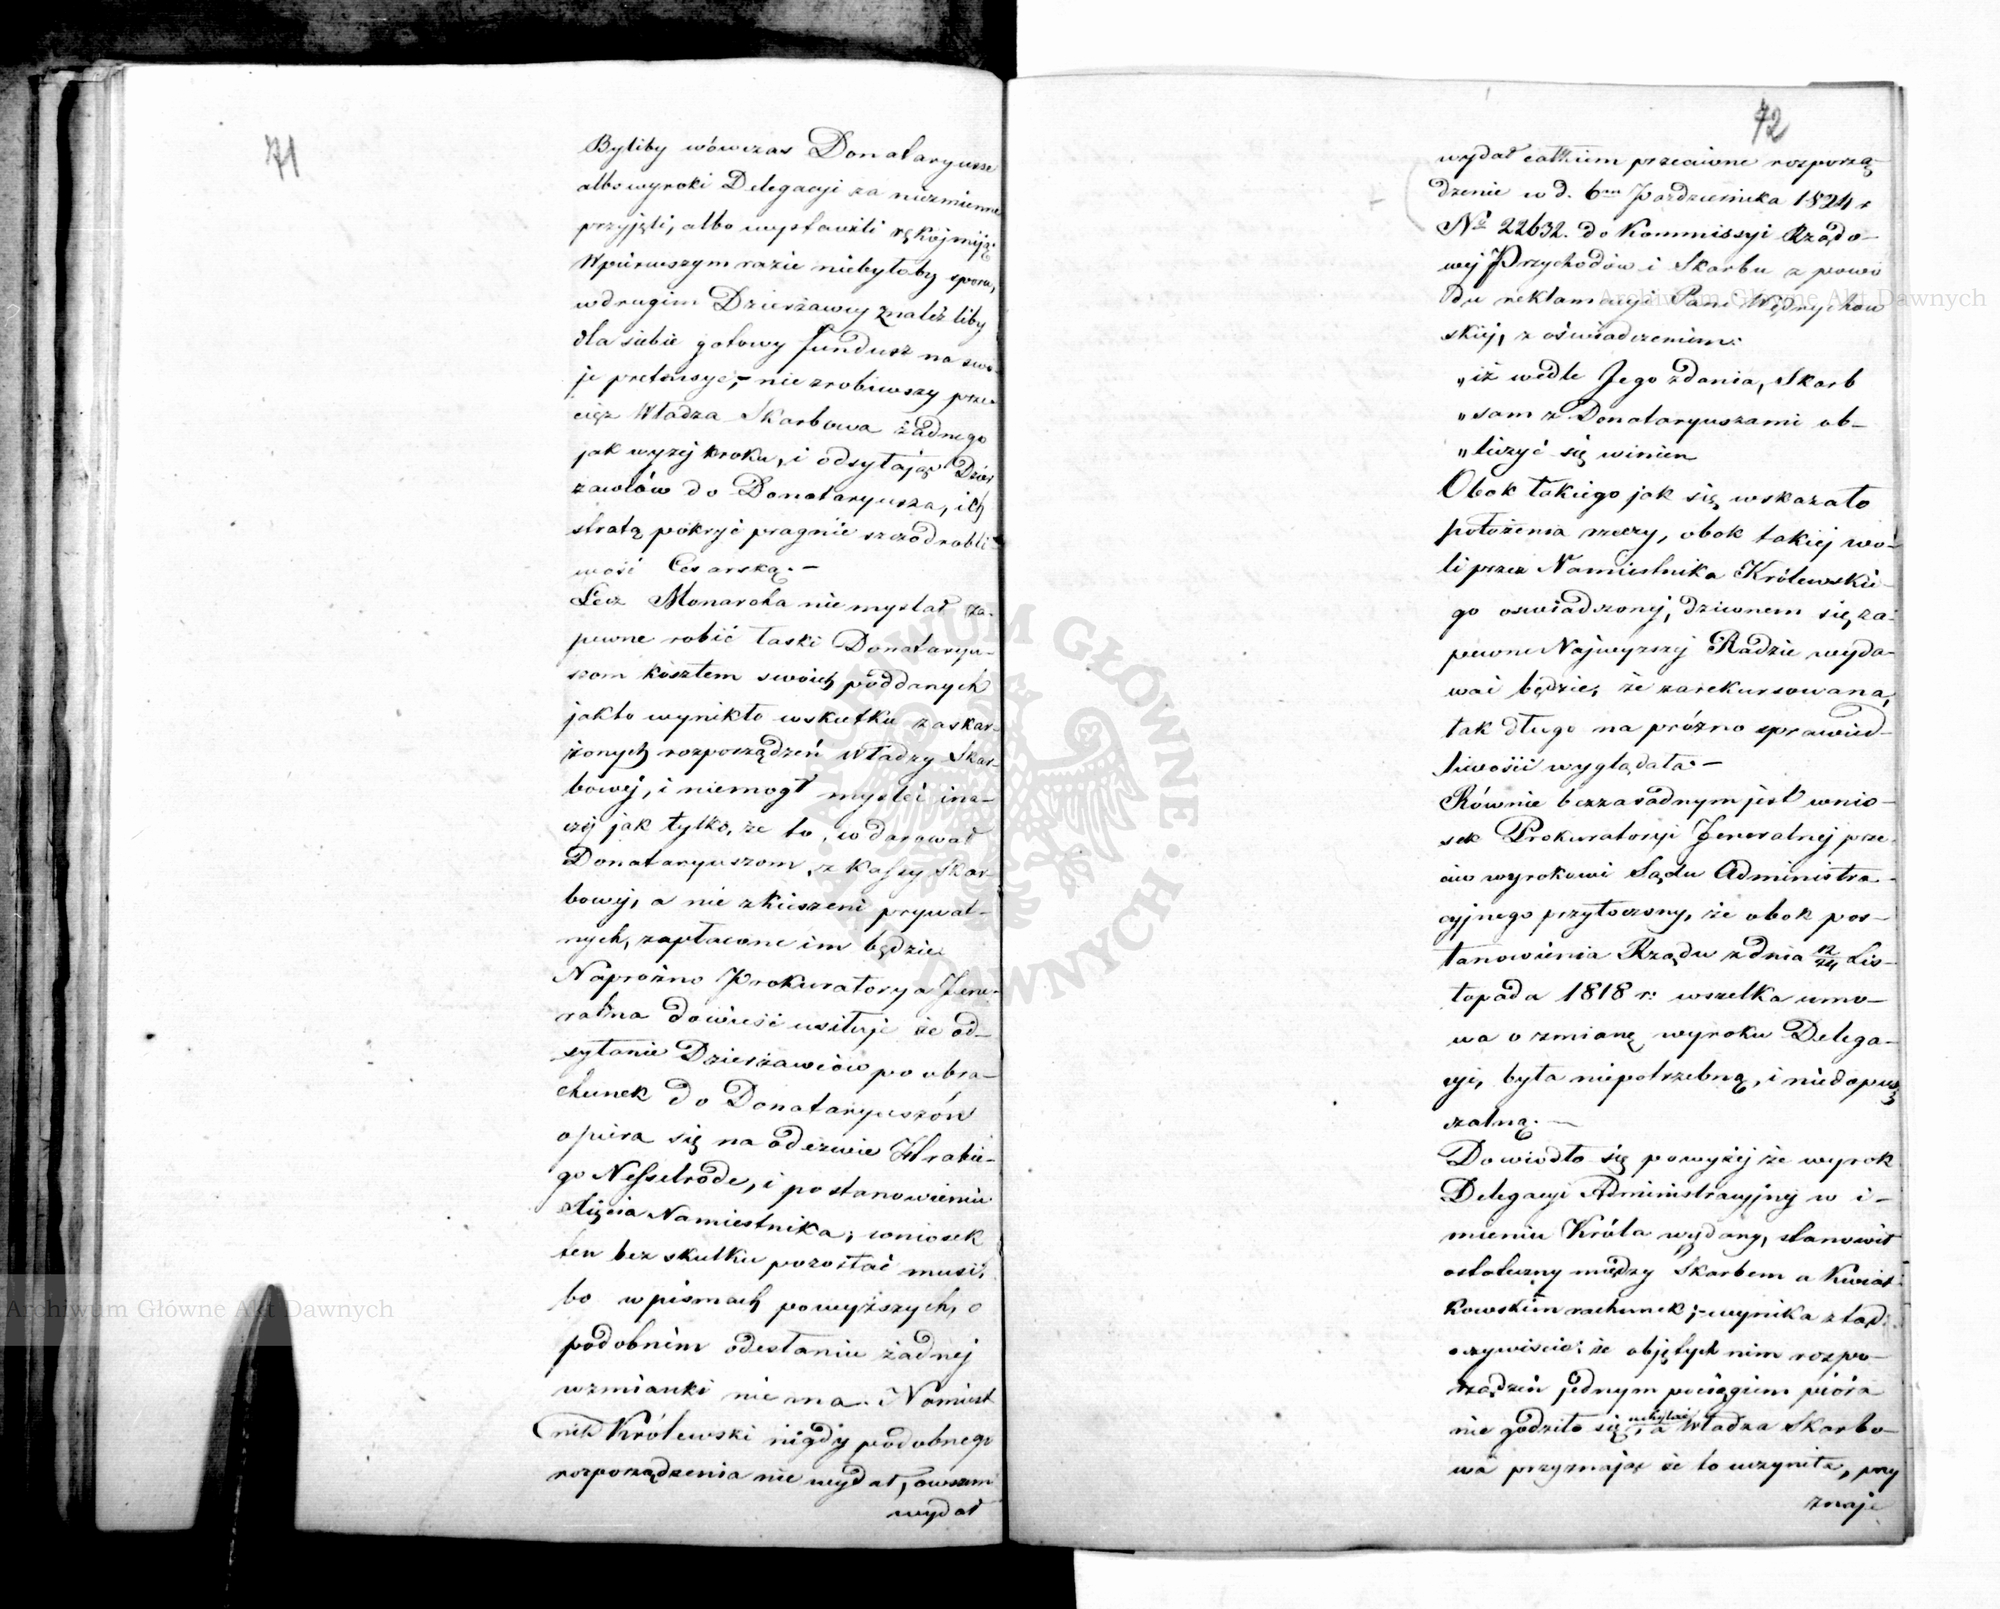 71
Byliby wówczas Donataryusze
albo wyroki Delegacyi za niezmienne
przyjęli, albo wystawili rękojmiją:
Wpierwszym razie niebyłoby sporu,
wdrugim Dzierżawcy znaleźliby
dla siebie gotowy fundusz na swo-
je pretensye; – nie zrobiwszy prze-
cięż Władza Skarbowa żadnego
jak wyżej kroku, i odsyłając Dzier
żawców do Donataryusza, ich
stratą pokryć pragnie szczodrobli-
wość Cesarską. –
Lecz Monarcha nie myslał za-
pewne robić łaski Donataryu-
szom kosztem swoich poddanych
jak to wynikło wskutku zaskar-
żonych rozporządzeń Władzy Skar-
bowej, i niemógł mysleć ina-
czej jak tylko, że to, co darował
Donataryuszom, z Kassy Skar-
bowej, a nie zkieszeni prywat-
nych, zapłacone im będzie.
Napróżno Prokuratorya Jene-
ralna dowieść usiłuje że od-
syłanie Dzierżawców po obra-
chunek do Donataryuszów
opiera się na odezwie Hrabie-
go Nesselrode, i postanowieniu
Xięcia Namiestnika; wniosek
ten bez skutku pozostać musi,
bo w pismach powyższych, o
podobném odesłaniu żadnej
wzmianki nie ma. Namiest
nik Królewski nigdy podobnego
rozporządzenia nie wydał, owszem
wydał
72
wydał całkiem przeciwne rozporzą-
dzenie w d. 6m Października 1824 r
No 22632. do Kommissyi Rządo-
wej Przychodów i Skarbu z powo
du reklamacyi Pani Wędrychow
skiej, z oświadczeniem:
„iż wedle Jego zdania, Skarb
„sam z Donataryuszami ob-
„liczyć się winien
Obok takiego jak się wskazało
położenia rzeczy, obok takiej wo-
li przez Namiestnika Królewskie-
go oswiadczonej, dziwnem się za-
pewne Najwyższej Radzie wyda-
wać będzie, że zarekursowana,
tak długo na próżno sprawied-
liwości wyglądała. –
Równie bezzasadnym jest wnio-
sek Prokuratoryi Jeneralnej prze-
ciw wyrokowi Sądu Administra-
cyjnego przytoczony, że obok pos-
tanowienia Rządu z dnia 12/24 Lis-
topada 1818 r: wszelka umo-
wa o zmianę wyroku Delega-
cyi, była niepotrzebną, i niedopusz
czalną. –
Dowiodło się powyżej że wyrok
Delegacyi Administracyjnej w i-
mieniu Króla wydany, stanowił
ostateczny między Skarbem a Kwiat-
kowskim rachunek; – wynika ztąd
oczywiscie: że objętych nim rozpo-
rządzeń jednym pociągiem pióra
nie godziło się uchylać, a Władza Skarbo-
wa przyznając że to uczyniła, przy
znaje
Archiwum Główne Akt Dawnych
Archiwum Główne Akt Dawnych
ARCHIWUM GŁÓWNE • AKT DAWNYCH •